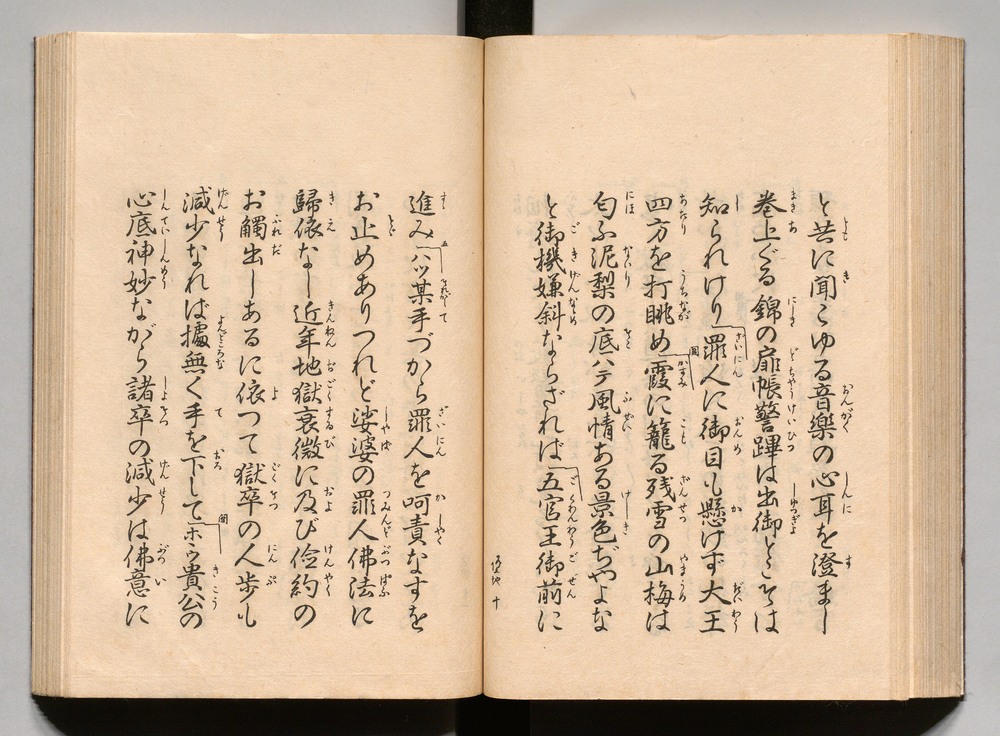 と共に聞こゆる音樂の心耳を澄まし
巻上ぐる錦の扉帳警蹕は出御とこそは
知られけり罪人に御目も懸けず大王
四方を打眺め霞に籠る残雪の山梅は
匂ふ泥梨の底ハテ風情ある景色ぢやよな
と御機嫌斜ならざれば五官王御前に
十
進みハッ某手づから罪人を呵責なすを
お止めありつれど娑婆の罪人佛法に
歸依なし近年地獄衰微に及び儉約の
お觸出しあるに依つて獄卒の人歩も
減少なれば據無く手を下してホウ貴公の
心底神妙ながら諸卒の減少は佛意に